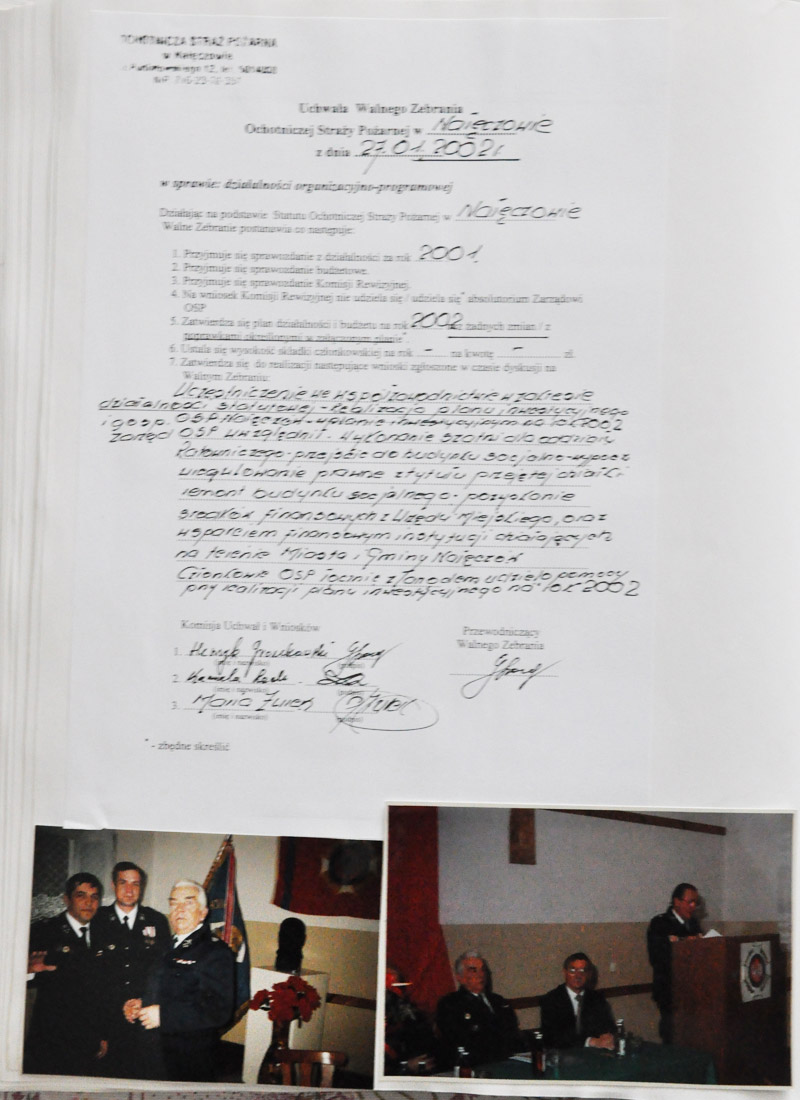 OCHOTNICZA STRAŻ POŻARNA
w Nałęczowie
Uchwała Walnego Zebrania
Ochotniczej Straży Pożarnej w Nałęczowie
z dnia 27.01.2002r.
w sprawie: działalności organizacyjno-programowej
Działając na podstawie Statutu Ochotniczej Straży Pożarnej w Nałęczowie
Walne Zebranie postanawia co następuje:
1. Przyjmuje się sprawozdanie z działalności za rok 2001
2. Przyjmuje się sprawozdanie budżetowe.
3. Przyjmuje się sprawozdanie Komisji Rewizyjnej.
4. Na wniosek Komisji Rewizyjnej nie udziela się / udziela się* absolutorium Zarządowi
OSP
5. Zatwierdza się plan działalności i budżetu na rok 2002 bez żadnych zmian / z
poprawkami określonymi w załączonym planie*.
6. Ustala się wysokość składki członkowskiej na rok - na kwotę - zł.
7. Zatwierdza się do realizacji następujące wnioski zgłoszone w czasie dyskusji na
Walnym Zebraniu:
Uczestniczenie we współzawodnictwie w zakresie
działalności statutowej - Realizacja planu inwestycyjnego
i gosp. OSP Nałęczów - w planie inwestycyjnym na rok 2002
Zarząd OSP uwzględnił - Wykonanie szatni dla oddziału
Ratowniczego - przejście do budynku socjalno-
uregulowanie prawne z tytułu przejętej działki
remont budynku socjalnego - pozyskanie
środków finansowych z Urzędu Miejskiego, oraz
wsparciem finansowym instytucji działających
na terenie Miasta i Gminy Nałęczów
Członkowie OSP łącznie z Zarządem udzielą pomocy
przy realizacji planu inwestycyjnego na rok 2002
Komisja Uchwał i Wniosków
Przewodniczący
Walnego Zebrania
1. Henryk
(imię i nazwisko) (podpis)
2. Kamila
(imię i nazwisko)
3. Maria Żurek
(imię i nazwisko) (podpis)
* - zbędne skreślić